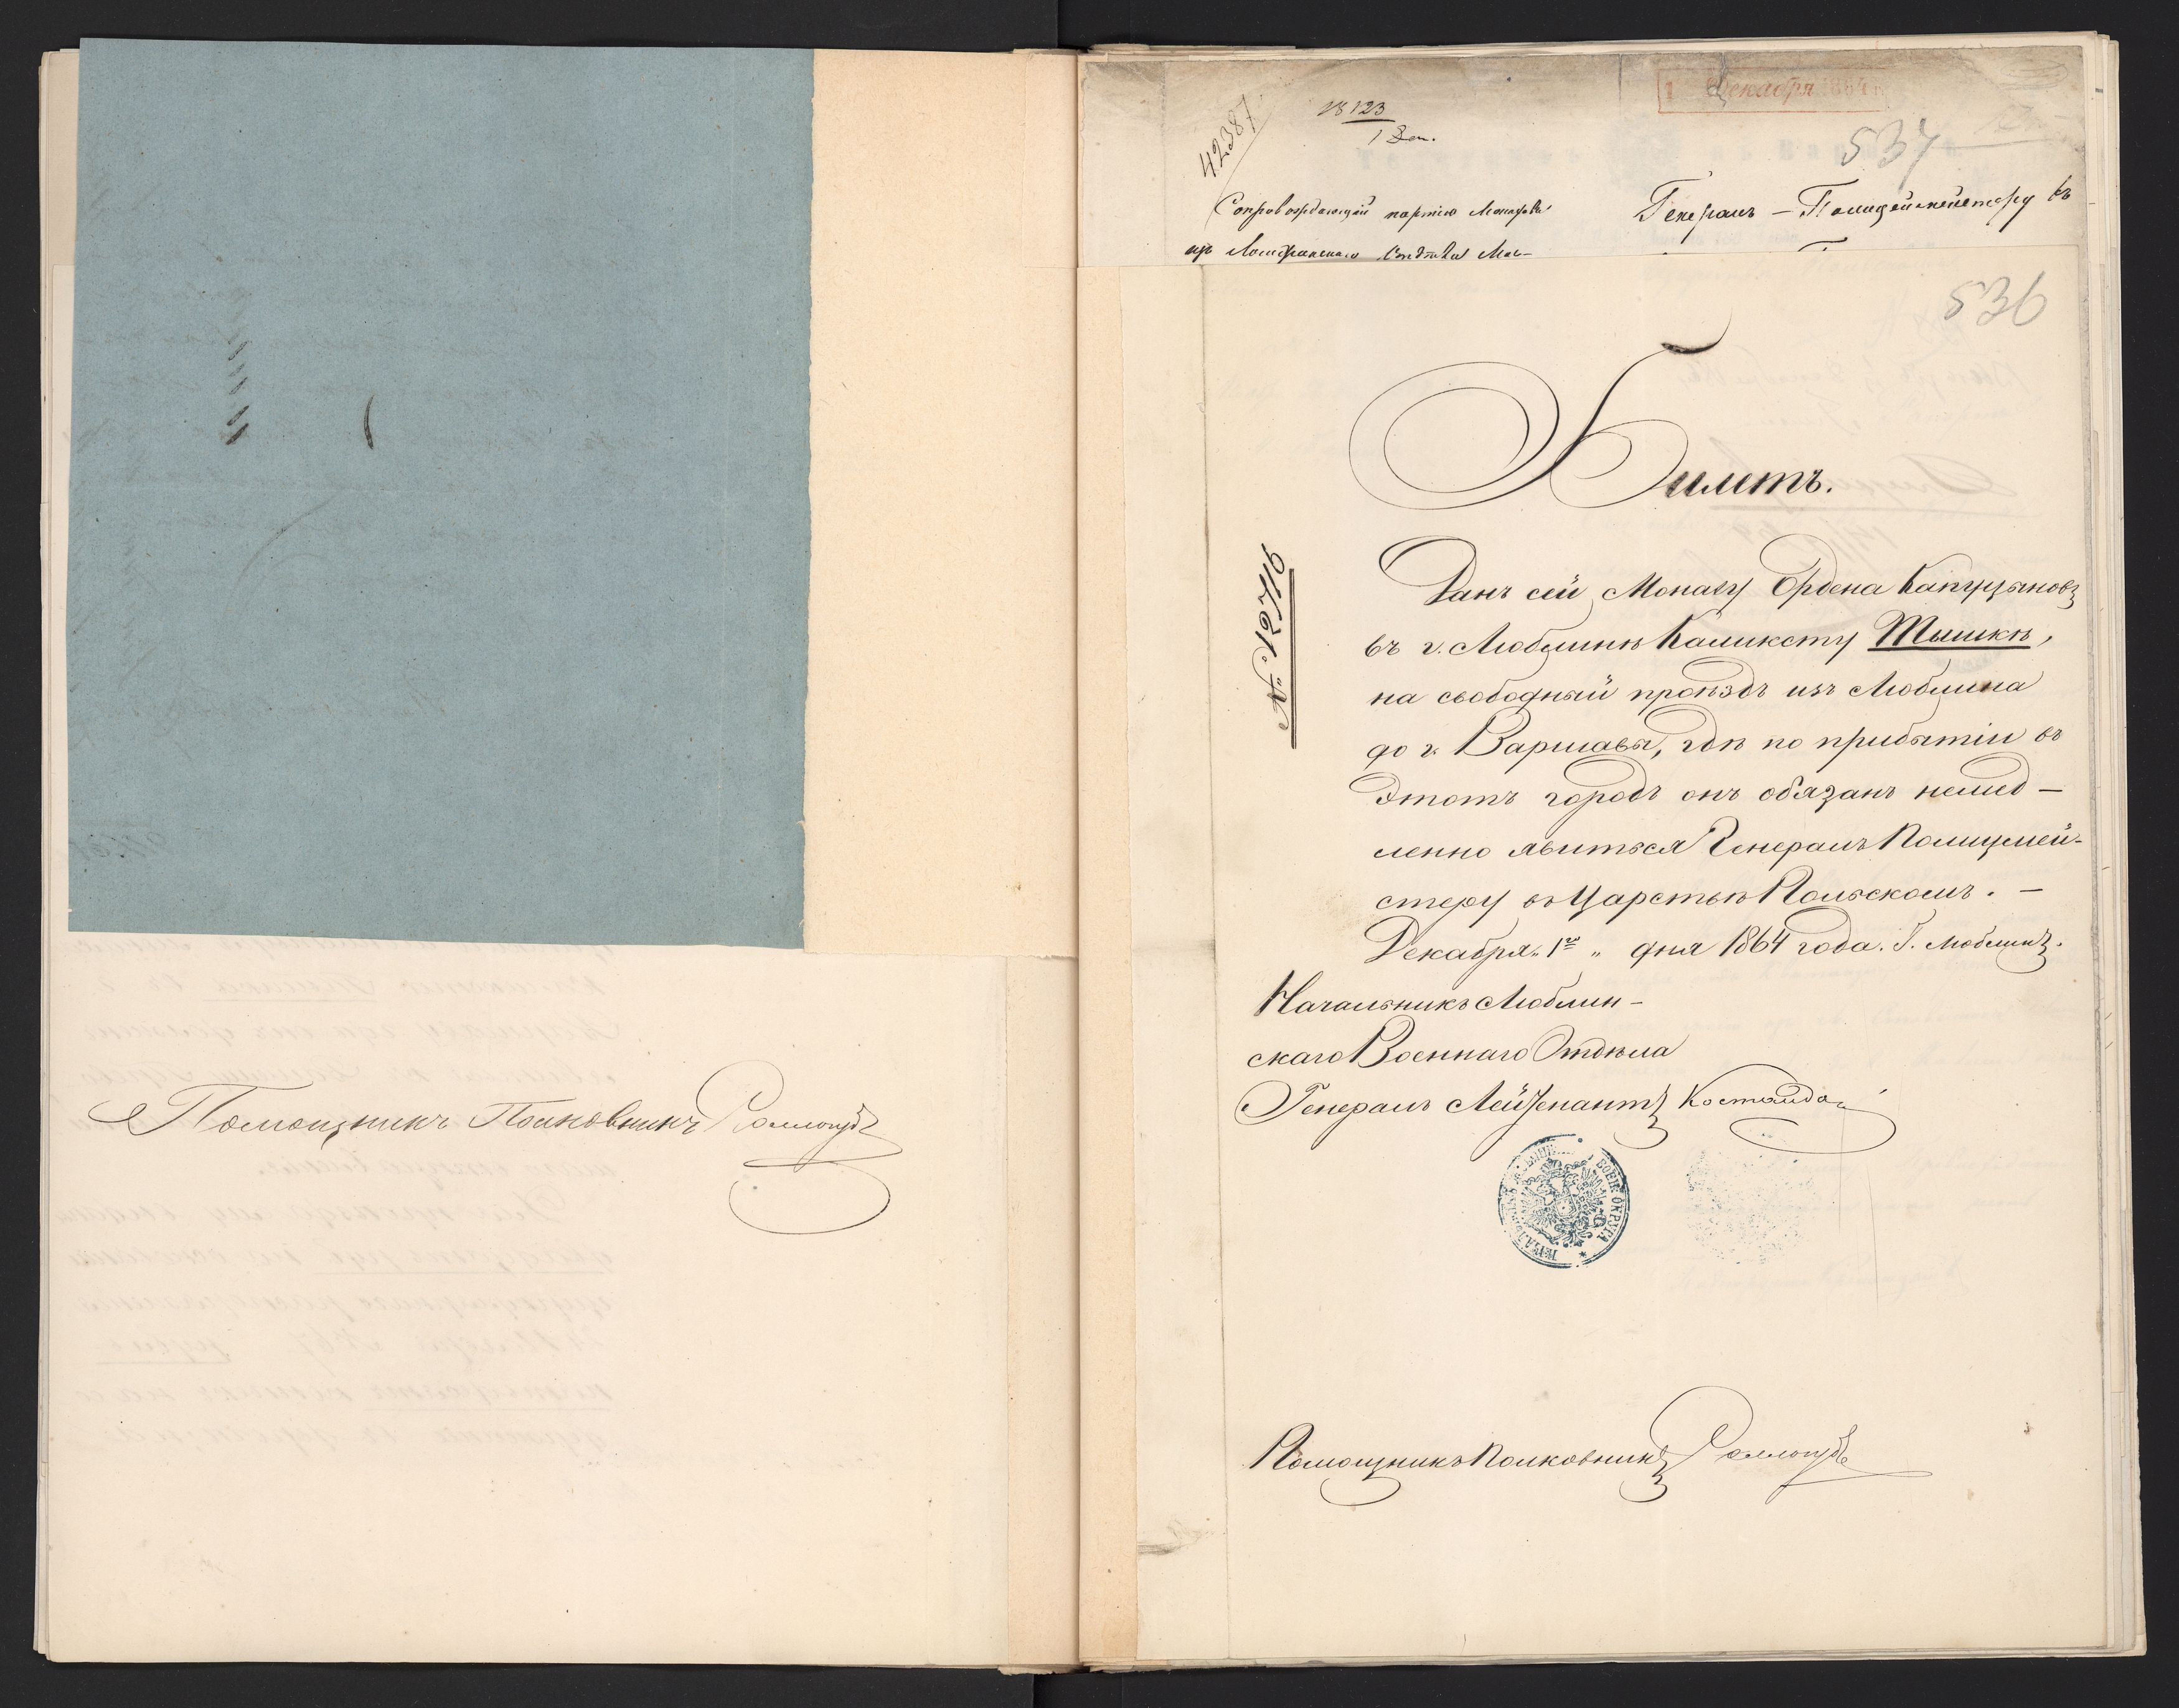 Помощникъ Полковникъ
42387
18123
1 Дек.
1 Декабря 1864
537
Сопровождающій партію Монаховъ
Генералъ-Полицеймейстеру въ
изъ
536
Билетъ.
№ 12716
Данъ сей Монаху Ордена Капуцыновъ
въ г. Люблинѣ Каликсту Тышкѣ,
на свободный проѣздъ изъ Люблина
до г. Варшавы, гдѣ по прибытіи въ
этотъ городъ онъ обязанъ немед-
ленно явиться Генералъ Полицмей-
стеру въ Царствѣ Польскомъ. —
Декабря „1го„ дня 1864 года. Г. Люблинъ.
Начальникъ Люблин-
скаго Военнаго Отдѣла
Генералъ Лейтенантъ Костанда
ВОЕН. ОКРУГА
Помощникъ Полковникъ